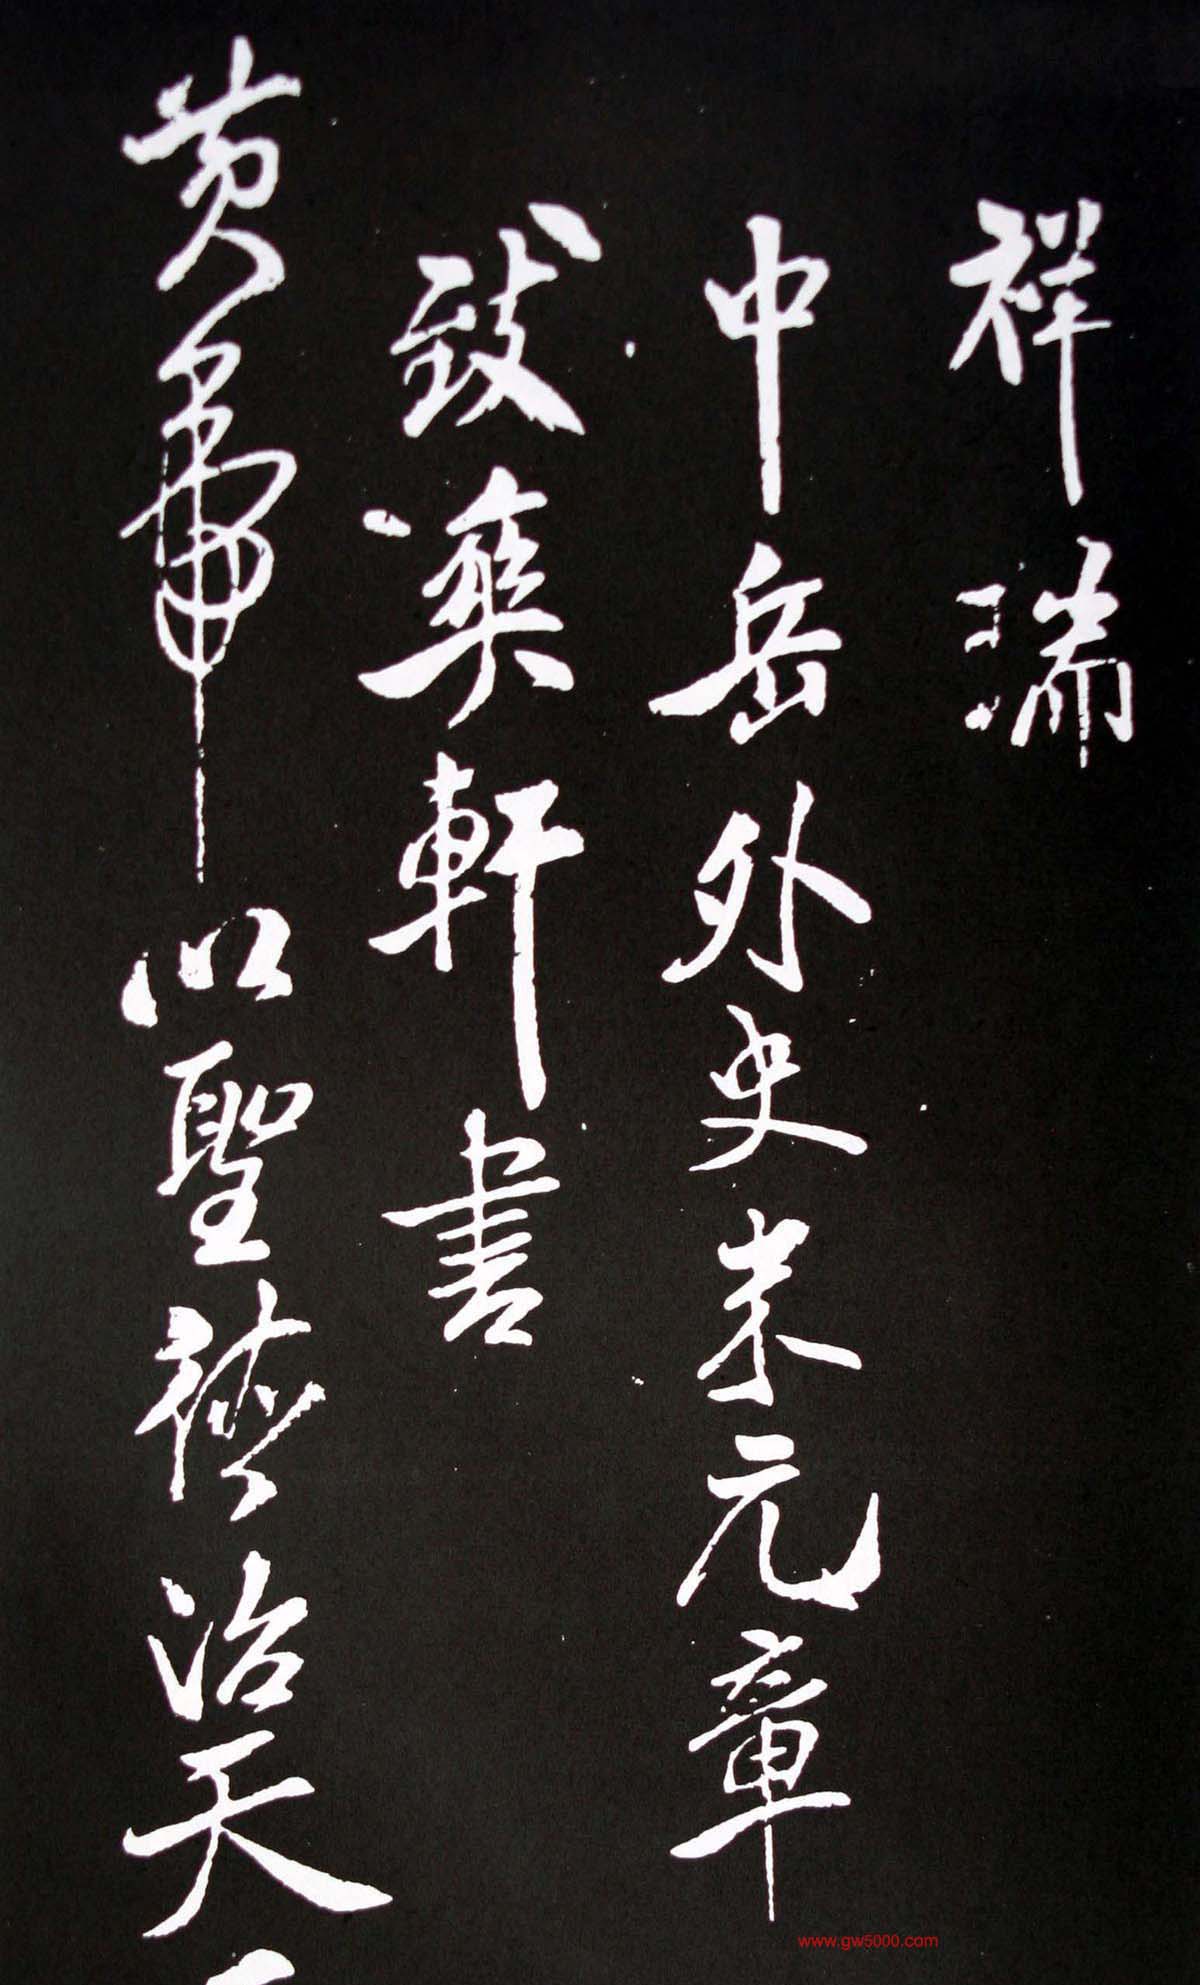 祥瑞
中岳外史米元章
致爽軒書
黄帝以聖德治天
www.gw5000.com